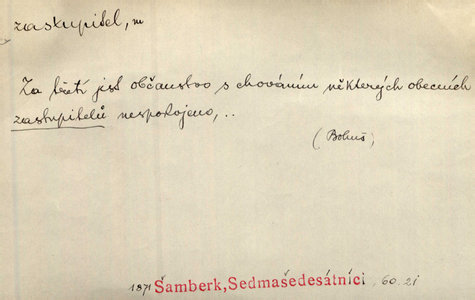 zastupitel, m
Za třetí jest občanstvo s chováním některých obecních
zastupitelů nespokojeno, ..
(Bohuš)
1871 Šamberk, Sedmašedesátníci, 60.21